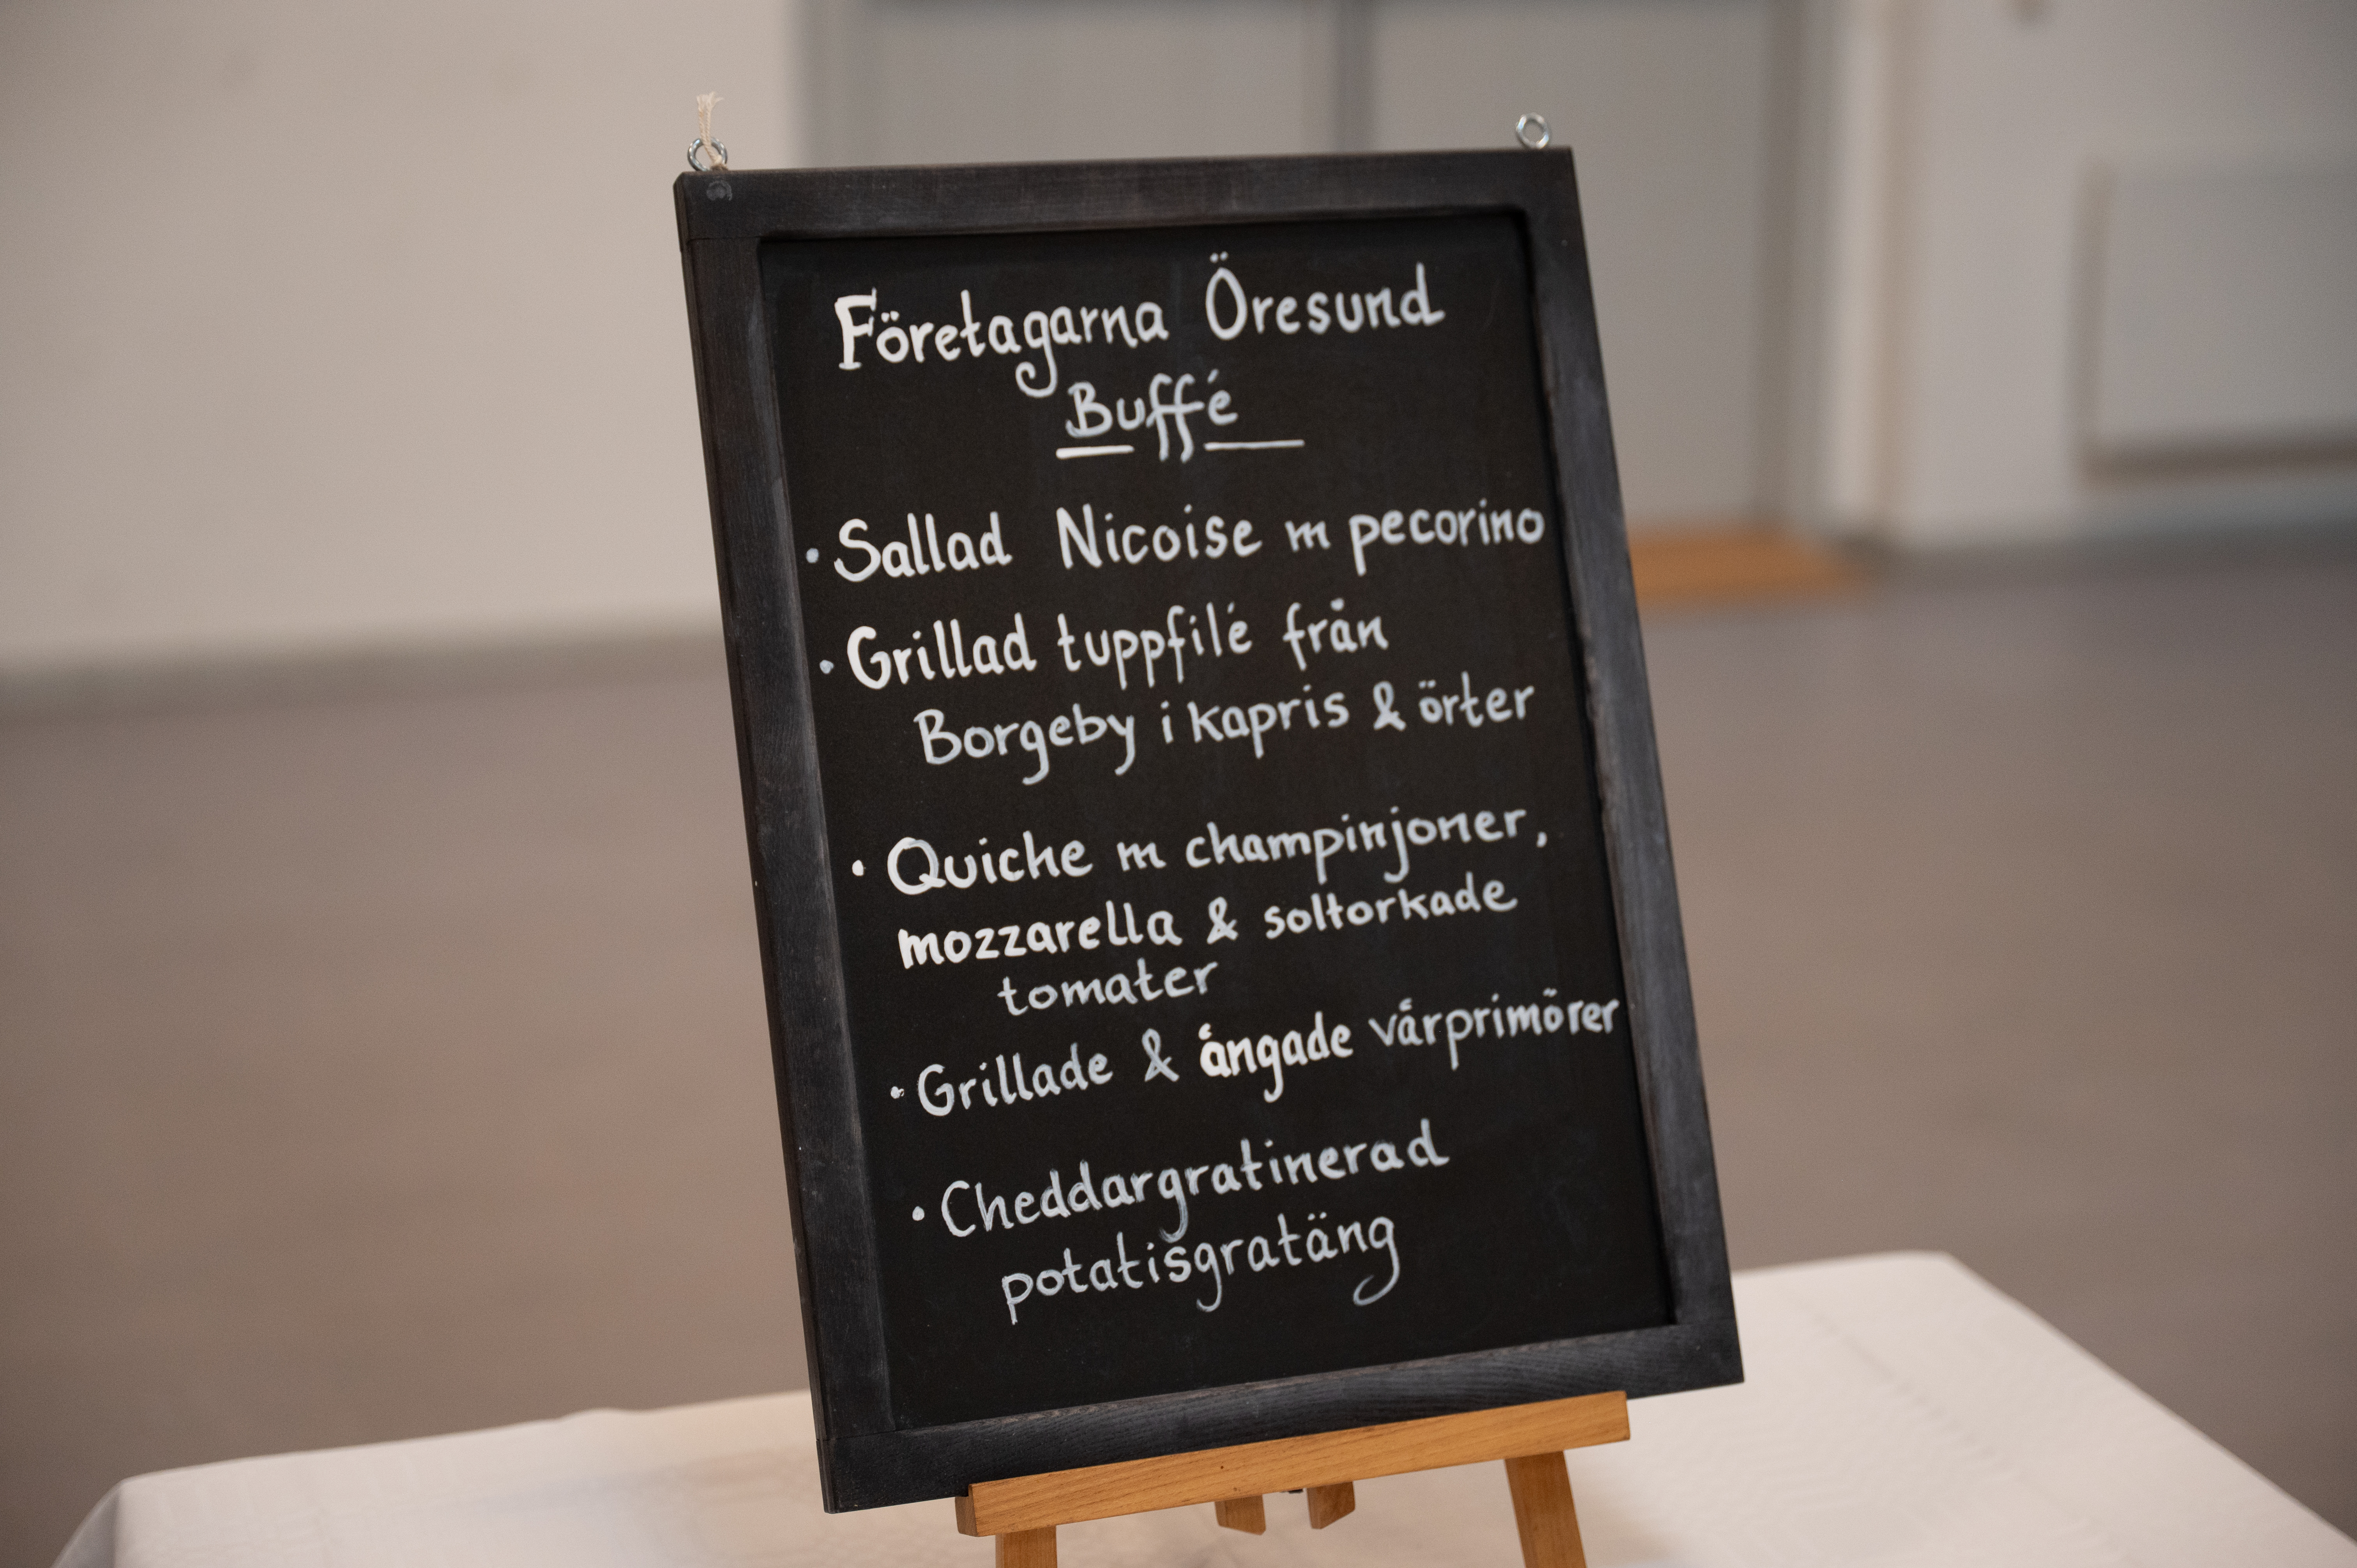 Företagarna Öresund
Buffé
• Sallad Nicoise m pecorino
• Grillad tuppfilé från
Borgeby i kapris & örter
• Quiche m champinjoner,
mozzarella & soltorkade
tomater
• Grillade & ångade vårprimörer
• Cheddargratinerad
potatisgratäng